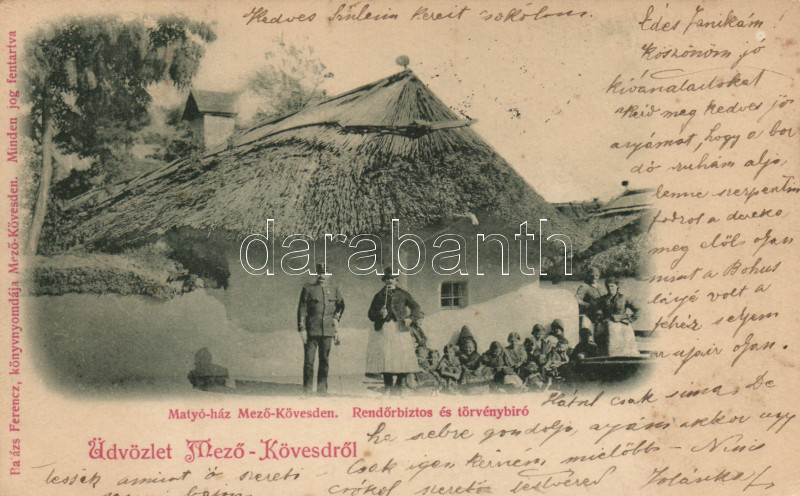 Kedves Szüleim kezeit csókolom.
Édes Janikám!
Köszönöm jó
kívánalaitokat
kedves jó
anyámat, hogy a bor
dó ruhám alja
lenne szerpentin
fodros a dereka
meg elől ojan
mint a
volt a
fehér selyem
ujair ojan.
Hátul csak sima, De
ha sebre gondolja, anyám akkor ugy
tessék amint ő szereti - Csak igen kérném, mielőbb -
Csókol szerető testvéred Jolánka
Matyó-ház Mező-Kövesden. Rendőrbiztos és törvénybiró
Üdvözlet Mező-Kövesdről
Balázs Ferencz, könyvnyomdája Mező-Kövesden. Minden jog fentartva
darabanth.com